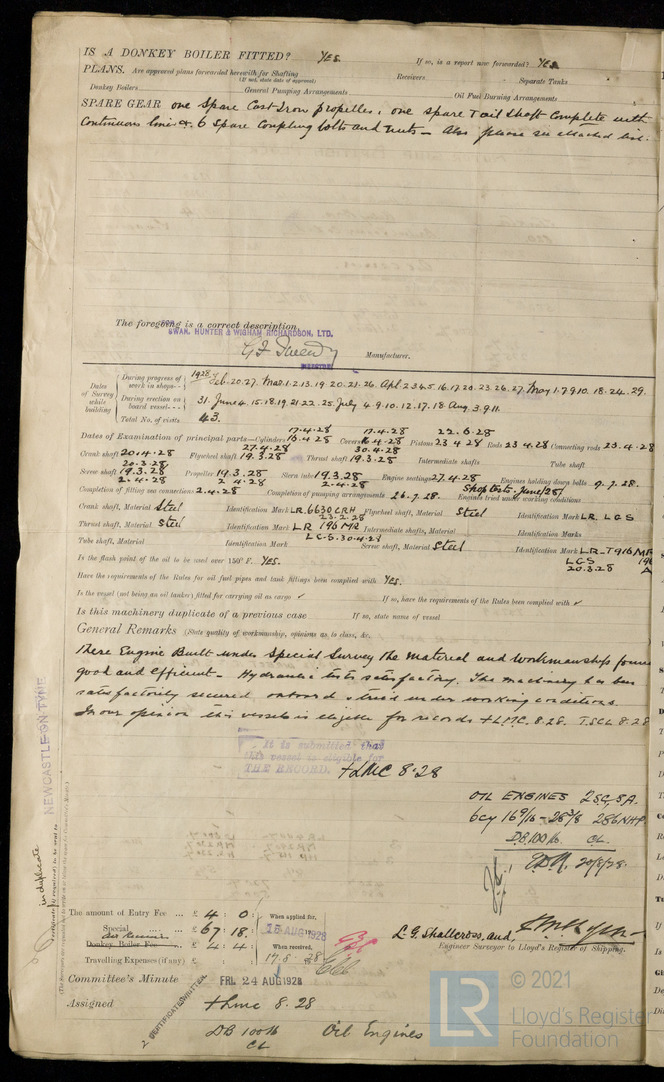 IS A DONKEY BOILER FITTED? YES. If so, is a report now forwarded? YES.
PLANS. Are approved plans forwarded herewith for Shafting Receivers Separate Tanks
(If not, state date of approval)
Donkey Boilers General Pumping Arrangements Oil Fuel Burning Arrangements
SPARE GEAR one Spare Cast Iron propeller, one spare Tail Shaft complete with
Continuous liner &. 6 Spare Coupling bolts and nuts - Also please see attached list.
The foregoing is a correct description,
FOR
SWAN, HUNTER & WIGHAM RICHARDSON, LTD.
Manufacturer.
DIRECTOR
Dates of Survey while building
During progress of work in shops - - 1928. Feb. 20. 27. Mar. 1. 2. 13. 19. 20. 21. 26. Apl 2 3 4 5. 16. 17. 20. 23. 26. 27. May 1. 7. 9. 10. 18. 24. 29.
During erection on board vessel - - - 31. June 4. 15. 18. 19. 21. 22. 25. July 4. 9. 10. 12. 17. 18. Aug. 3. 9. 11.
Total No. of visits 43.
17.4.28 17.4.28 22.6.28
Dates of Examination of principal parts—Cylinders 16.4.28 Covers 16.4.28 Pistons 23 4 28 Rods 23 4.28 Connecting rods 23.4.28
27.4.28 30.4.28
Crank shaft 20.4.28 Flywheel shaft 19.3.28 Thrust shaft 19.3.28 Intermediate shafts Tube shaft
20.3.28
Screw shaft 19.3.28 Propeller 19.3.28 Stern tube 19.3.28 Engine seatings 27.4.28 Engines holding down bolts 9.7.28.
2.4.28 2 4.28 2.4.28 Shop tests. June/28
Completion of fitting sea connections 2.4.28 Completion of pumping arrangements 26.7.28. Engines tried under working conditions
Crank shaft, Material Steel Identification Mark LR.6630 CRH Flywheel shaft, Material Steel Identification Mark LR. LGS
23.2.28
Thrust shaft, Material Steel Identification Mark LR 196 MR Intermediate shafts, Material Identification Marks
LGS. 30.4.28
Tube shaft, Material Identification Mark Screw shaft, Material Steel Identification Mark LR-T916 MR
Is the flash point of the oil to be used over 150° F. YES. LGS 196
20.3.28
Have the requirements of the Rules for oil fuel pipes and tank fittings been complied with YES.
Is the vessel (not being an oil tanker) fitted for carrying oil as cargo ✓ If so, have the requirements of the Rules been complied with ✓
Is this machinery duplicate of a previous case If so, state name of vessel
General Remarks (State quality of workmanship, opinions as to class, &c.
These Engine Built under Special Survey the material and workmanship found
good and efficient - Hydraulic tests satisfactory. The machinery has been
satisfactorily secured onboard & tried under working conditions.
In our opinion this vessel is eligible for records +LMC. 8.28. TSCL 8.28
It is submitted that
this vessel is eligible for
THE RECORD. +LMC 8.28
OIL ENGINES 2SC, SA.
6cy 16 9/16 - 28 3/8 286 NHP.
DB, 100 lb. CL.
20/8/28.
NEWCASTLE-ON-TYNE
in duplicate
The amount of Entry Fee ... £ 4 : 0 :
Special ... £ 67 : 18 :
Air Receiver
Donkey Boiler Fee ... £ 4 : 4
Travelling Expenses (if any) £ : :
When applied for,
16 AUG 1928
When received,
17.8.28
L. G. Shallcross. and,
Engineer Surveyor to Lloyd's Register of Shipping.
Committee's Minute FRI. 24 AUG 1928
Assigned +LMC 8.28
CERTIFICATE WRITTEN
DB 100 lb Oil Engines
CL
LR
© 2021
Lloyd's Register
Foundation